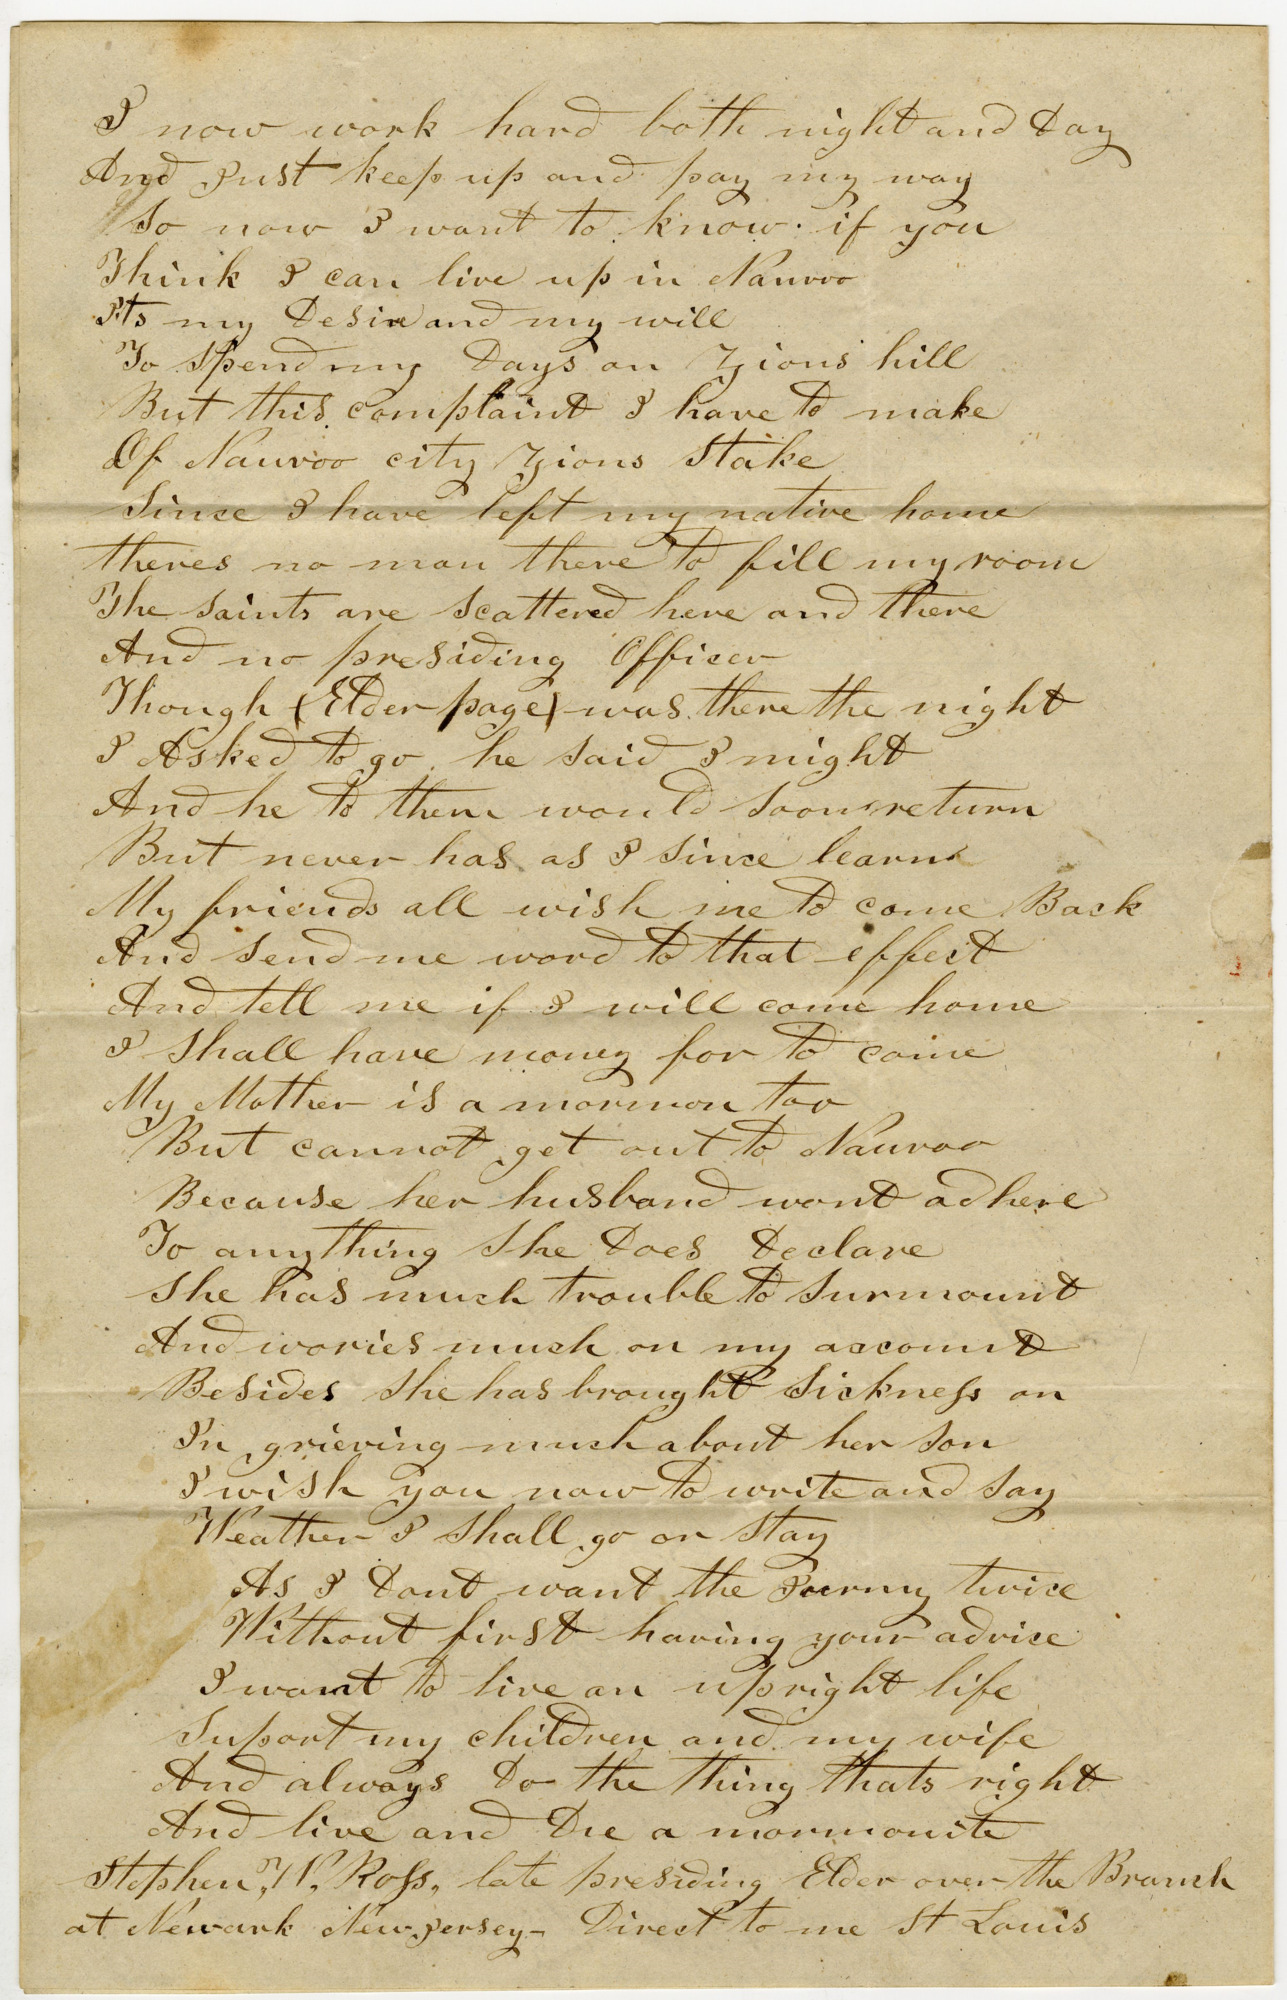 I now work hard both night and Day
And Just keep up and pay my way
So now I want to know. if you
Think I can live up in Nauvoo
Its my Desire and my will
To Spend my Days on Zions hill
But this complaint I have to make
Of Nauvoo city Zions Stake
Since I have left my native home
theres no man there to fill my room
The Saints are Scattered here and there
And no presiding Officer
Though (Elder page) was there the night
I Asked to go he Said I might
And he to them would Soon return
But never has as I Since learn
My friends all wish me to come Back
And Send me word to that effect
And tell me if I will come home
I Shall have money for to come
My Mother is a mormon too
But cannot get out to Nauvoo
Because her husband wont adhere
To anything She Does Declare
She has much trouble to Surmount
And wories much on my account
Besides She has brought Sickness on
In grieving much about her Son
I wish you now to write and Say
Weather I Shall go or Stay
As I Dont want the Journy twice
Without first having your advice
I want to live an upright life
Suport my children and my wife
And always Do the thing thats right
And live and Die a mormonite
Stephen, W, Ross, late presiding Elder over the Branch
at Newark New Jersey- Direct to me St Louis